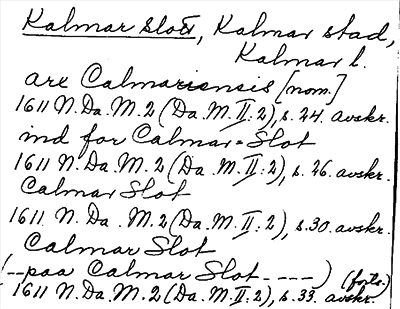 Kalmar slott, Kalmar stad,
Kalmar l.
arx Calmariensis [nom.]
1611 N. Da. M. 2 (Da. M. II: 2), s. 24. avskr.
ind for Calmar=Slot
1611 N. Da. M. 2 (Da. M. II: 2), s. 26. avskr.
Calmar Slot
1611. N. Da. M. 2 (Da. M. II: 2), s. 30. avskr.
Calmar Slot
(--paa Calmar Slot----) (forts.)
1611 N. Da. M. 2 (Da. M. II: 2), s. 33. avskr.